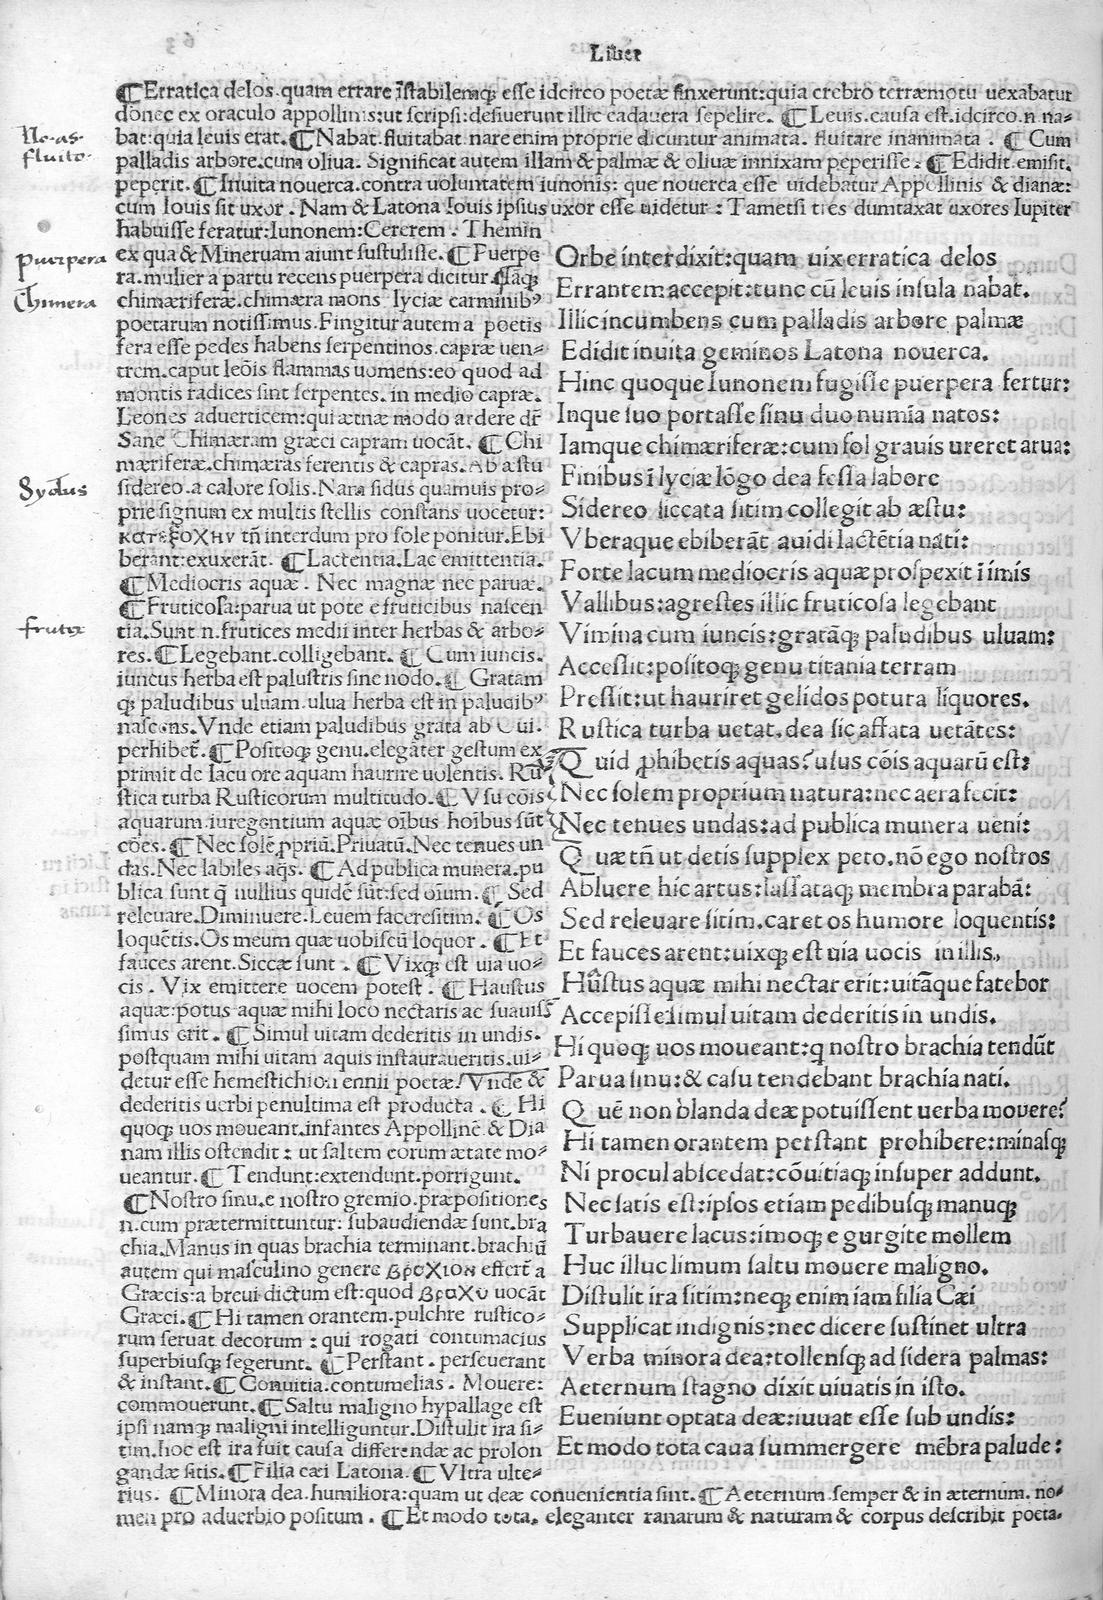 Liber
¶Erratica delos.quam errare īstabilemqꝫ esse idcirco poetæ finxerunt:quia crebro terræmotu uexabatur
donec ex oraculo appollinis:ut scripsi:desiuerunt illic cadauera sepelire. ¶Leuis.causa est.idcirco.n.na⸗
bat:quia leuis erat.¶Nabat.fluitabat.nare enim proprie dicuntur animata. fluitare inanimata . ¶Cum
palladis arbore.cum oliua. Significat autem illam & palmæ & oliuæ innixam peperisse . ¶Edidit.emisit.
peperit. ¶Inuita nouerca.contra uoluntatem iunonis: que nouerca esse uidebatur Appollinis & dianæ:
cum Iouis sit uxor . Nam & Latona Iouis ipsius uxor esse uidetur : Tametsi tres dumtaxat uxores Iupiter
habuisse feratur:Iunonem:Cererem . Themin
ex qua & Mineruam aiunt sustulisse. ¶Puerpe
ra.mulier a partu recens puerpera dicitur.¶Iāqꝫ
chimæriferæ.chimæra mons lyciæ carminibꝰ
poetarum notissimus.Fingitur autem a poetis
fera esse pedes habens serpentinos.capræ uen⸗
trem.caput leōis flammas uomens:eo quod ad
montis radices sint serpentes. in medio capræ.
Leones aduerticem:qui ætnæ modo ardere dr̄
Sane Chimæram græci capram uocāt. ¶Chi
mæriferæ.chimæras ferentis & capras. Ab æstu
sidereo.a calore solis.Nam sidus quamuis pro⸗
prie signum ex multis stellis constans uocetur:
κατεξοχην tn̄ interdum pro sole ponitur.Ebi
berant.exuxerāt. ¶Lactentia.Lac emittentia.
¶Mediocris aquæ . Nec magnæ nec paruæ.
¶Fruticosa:parua ut pote e fruticibus nascen
tia.Sunt.n.frutices medii inter herbas & arbo⸗
res.¶Legebant.colligebant. ¶Cum iuncis.
iuncus herba est palustris sine nodo.¶ Gratam
qꝫ paludibus uluam.ulua herba est in paludibꝰ
nascens.Vnde etiam paludibus grata ab Oui.
perhibet̄.¶Positoqꝫ genu.elegāter gestum ex
primit de lacu ore aquam haurire uolentis. Ru
stica turba Rusticorum multitudo.¶Vsu cōis
aquarum.iuregentium aquæ oibus hoibus sūt
cōes.¶Nec solē ꝓpriū.Priuatū.Nec tenues un
das.Nec labiles aq̄s. ¶Ad publica munera.pu
blica sunt q̄ nullius quidē sūt:sed oīum.¶Sed
releuare.Diminuere.Leuem facere sitim.¶Os
loquētis.Os meum quæ uobiscū loquor . ¶Et
fauces arent.Siccæ sunt . ¶Vixqꝫ est uia uo⸗
cis . Vix emittere uocem potest . ¶Haustus
aquæ:potus aquæ mihi loco nectaris ac suauis
simus erit . ¶Simul uitam dederitis in undis.
postquam mihi uitam aquis instaurauer­itis.ui⸗
detur esse hemestichion ennii poetæ/Vnde &
dederitis uerbi penultima est producta . ¶ Hi
quoqꝫ uos moueant.infantes Appollinē & Dia
nam illis ostendit : ut saltem eorum ætate mo⸗
ueantur.¶Tendunt:extendunt.porrigunt.
¶Nostro sinu.e nostro gremio.præpositiones
n.cum prætermittuntur: subaudiendæ sunt.bra
chia.Manus in quas brachia terminant.brachiū
autem qui masculino genere βραχιον effert̄ a
Græcis:a breui dictum est:quod βραχυ uocāt
Græci.¶Hi tamen orantem.pulchre rustico⸗
rum seruat decorum : qui rogati contumacius
superbiusqꝫ segerunt. ¶Perstant . perseuerant
& instant.¶Conuitia.contumelias . Mouere:
commouerunt.¶Saltu maligno hypallage est
ipsi namqꝫ maligni intelliguntur.Distulit ira si⸗
tim.hoc est ira fuit causa differendæ ac prolon
gandæ sitis.¶Filia cæi Latona.¶Vltra ulte⸗
rius. ¶Minora dea.humiliora:quam ut deæ conuenientia sint.¶Aeternum.semper & in æternum.no⸗
men pro aduerbio positum . ¶Et modo tota. eleganter ranarum & naturam & corpus describit poeta.
Orbe interdixit:quam uix erratica delos
Errantem accepit:tunc cū leuis insula nabat.
Illic incumbens cum palladis arbore palmæ
Edidit inuita geminos Latona nouerca.
Hinc quoque Iunonem fugisse puerpera fertur:
Inque suo portasse sinu duo numīa natos:
Iamque chimæriferæ:cum sol grauis ureret arua:
Finibus ī lyciæ lōgo dea fessa labore
Sidereo siccata sitim collegit ab æstu:
Vberaque ebiberāt auidi lactētia nati:
Forte lacum mediocris aquæ prospexit ī imis
Vallibus:agrestes illic fruticosa legebant
Vimina cum iuncis:gratāqꝫ paludibus uluam:
Accessit:positoqꝫ genu titania terram
Pressit:ut hauriret gelidos potura liquores.
Rustica turba uetat.dea sic affata uetātes:
Quid ꝓhibetis aquas? usus cōis aquarū est:
Nec solem proprium natura:nec aera fecit:
Nec tenues undas:ad publica munera ueni:
Quæ tn̄ ut detis supplex peto.nō ego nostros
Abluere hic artus:lassataqꝫ membra parabā:
Sed releuare sitim.caret os humore loquentis:
Et fauces arent:uixqꝫ est uia uocis in illis,
Hūstus aquæ mihi nectar erit:uitāque fatebor
Accepisse simul uitam dederitis in undis.
Hi quoqꝫ uos moueant:q nostro brachia tendūt
Parua sinu:& casu tendebant brachia nati.
Quē non blanda deæ potuissent uerba mouere?
Hi tamen orantem perstant prohibere:minasqꝫ
Ni procul abscedat:cōuitiaqꝫ insuper addunt.
Nec satis est:ipsos etiam pedibusqꝫ manuqꝫ
Turbauere lacus:imoqꝫ e gurgite mollem
Huc illuc limum saltu mouere maligno.
Distulit ira sitim:neqꝫ enim iam filia Cæi
Supplicat indignis:nec dicere sustinet ultra
Verba minora dea:tollensqꝫ ad sidera palmas:
Aeternum stagno dixit uiuatis in isto.
Eueniunt optata deæ:iuuat esse sub undis:
Et modo tota caua summergere mēbra palude:
No-as-
fluito.
puerpera
Chimera
Sydus
frutex